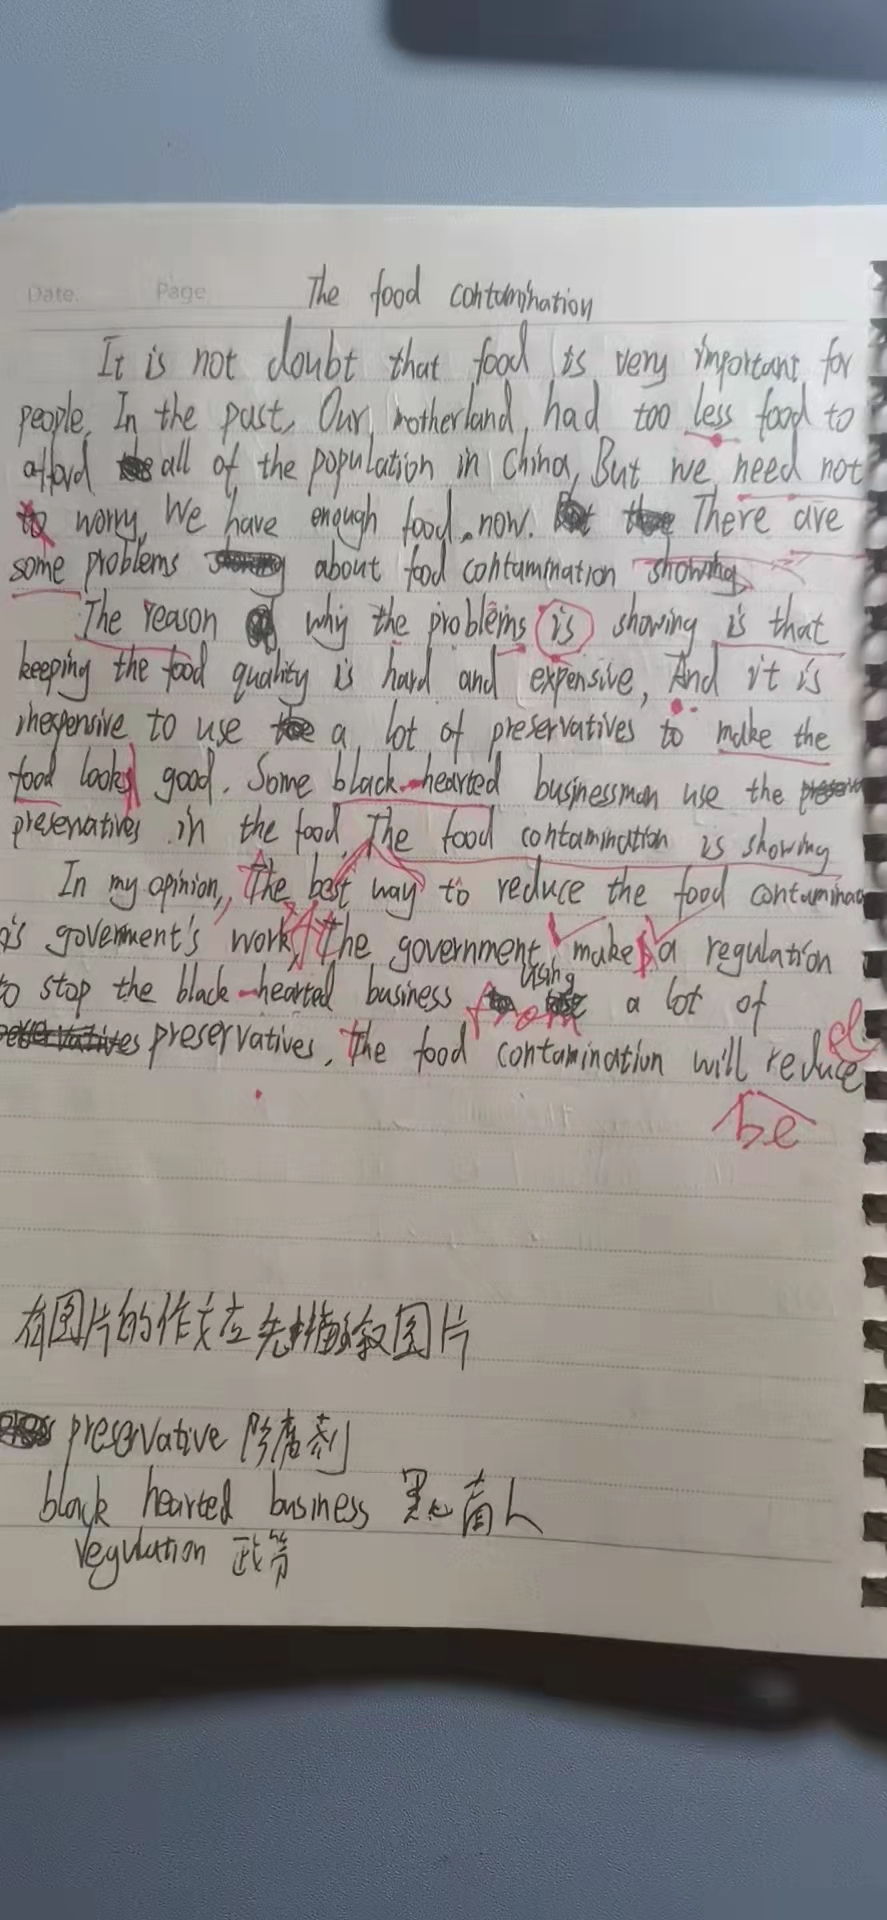 Date.
Page
The food contamination
It is not doubt that food is very important for
people. In the past, Our motherland had too less food to
afford all of the population in China, But we need not
to worry, We have enough food now. There are
some problems about food contamination showing
The reason why the problems is showing is that
keeping the food quality is hard and expensive, And it is
inexpensive to use a lot of preservatives to make the
food looks good. Some black-hearted businessman use the
preservatives in the food, The food contamination is showing
In my opinion, The best way to reduce the food contaminat
is goverment's work, The government make a regulation
to stop the black-hearted business from using a lot of
preservatives, The food contamination will reduce
be
有图片的作文应先描叙图片
preservative 防腐剂
black hearted business 黑心商人
regulation 政策